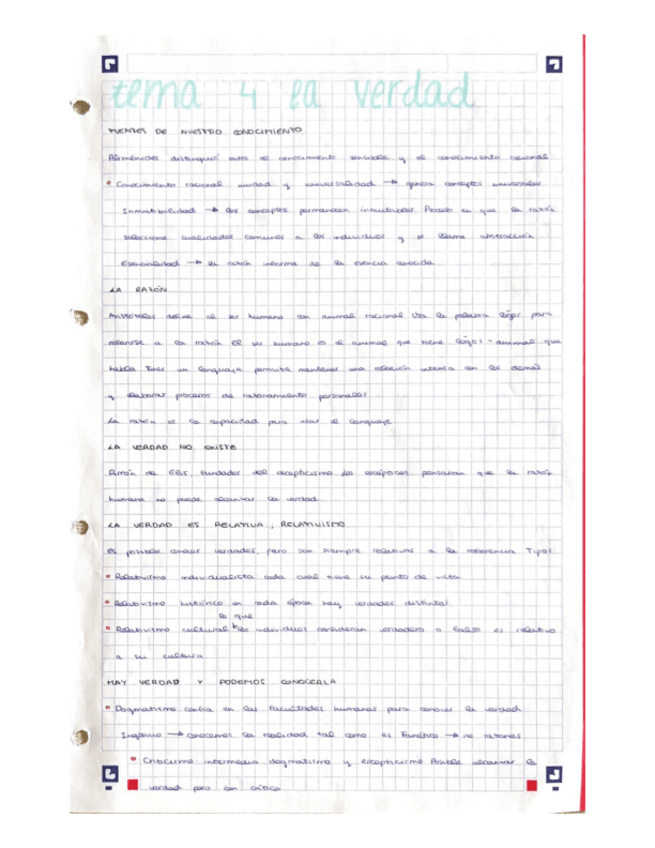 tema 4 la verdad
FUENTES DE NUESTRO CONOCIMIENTO
Parménides distinguí entre el conocimiento sensible y el conocimiento racional
• Conocimiento racional unidad y universalidad → genera conceptos universales
Inmutabilidad → los conceptos permanecen inmutables Proceso en que la razón
selecciona cualidades comunes a los individuos y se llama abstracción
Esencialidad → la razón informa de la esencia conocida
LA RAZÓN
Aristóteles define al ser humano con animal racional Usa la palabra lógos para
referirse a la razón El ser humano es el animal que tiene lógos = animal que
habla Tener un lenguaje permite mantener una relación intensa con los demás
y elaborar procesos de razonamiento personales
La razón es la capacidad para usar el lenguaje
LA VERDAD NO EXISTE
Pirrón de Elis, fundador del escepticismo Los escépticos pensaban que la razón
humana no puede alcanzar la verdad
LA VERDAD ES RELATIVA, RELATIVISMO
es posible conocer verdades, pero son siempre relativas a la referencia Tipos
• Relativismo individualista cada cual tiene su punto de vista
• Relativismo histórico en cada época hay verdades distintas
lo que
• Relativismo cultural los individuos consideran verdadero o falso es relativo
a su cultura
HAY VERDAD Y PODEMOS CONOCERLA
• Dogmatismo confía en las facultades humanas para conocer la verdad
Ingenuo → conocemos la realidad tal como es Fanático → no razones
• Criticismo intermedia dogmatismo y escepticismo Posible alcanzar la
verdad pero con crítica